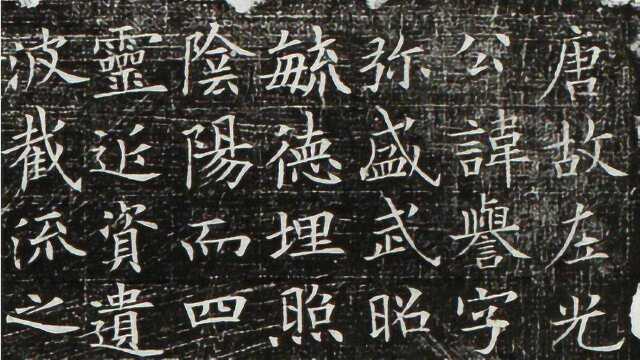 唐故左光
公諱譽字
弥盛武昭
毓德埋照
陰陽而四
靈近資遺
波截流之